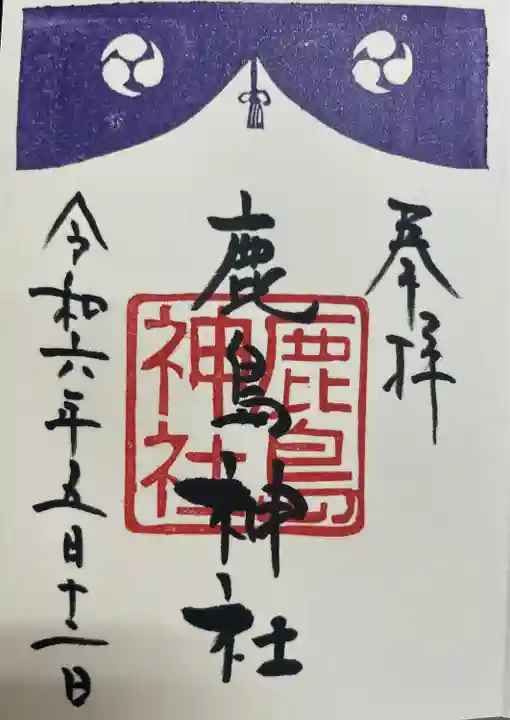 奉拝
鹿島神社
鹿島
神社
令和六年五日十二日